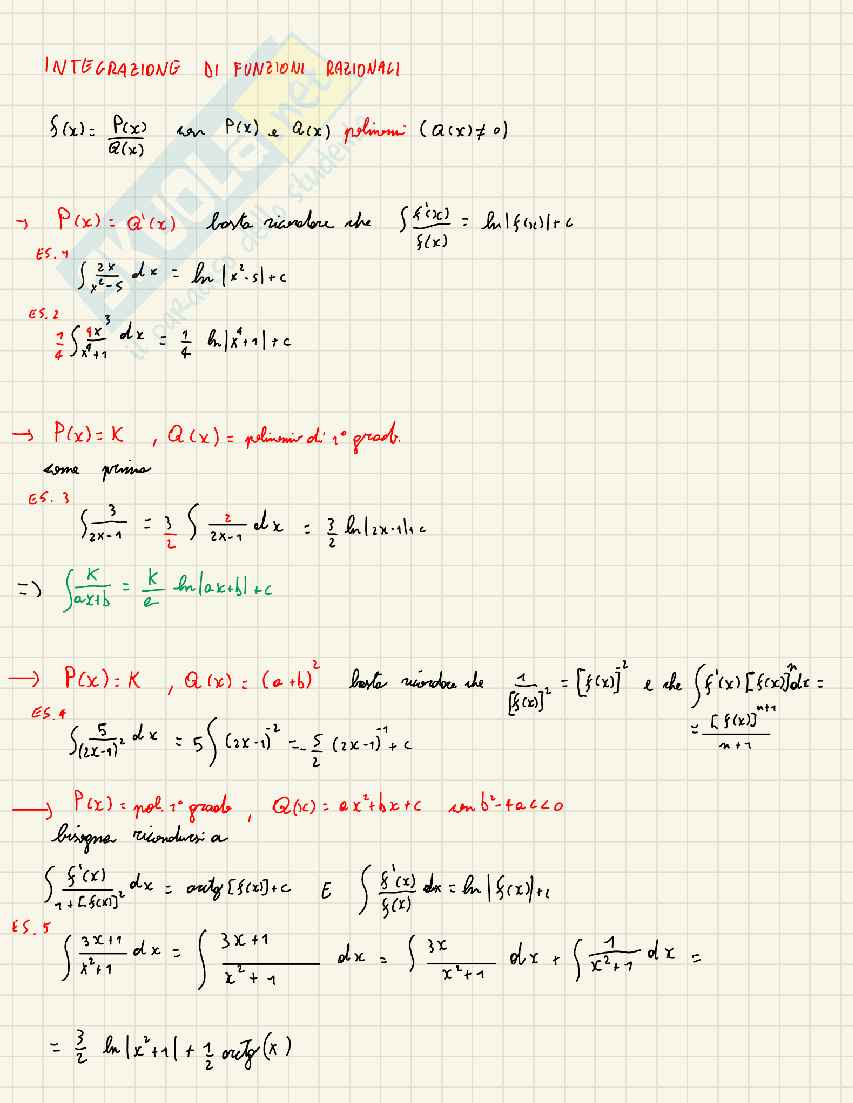 INTEGRAZIONE DI FUNZIONI RAZIONALI
f(x) = P(x)/Q(x) con P(x) e Q(x) polinomi (Q(x) ≠ 0)
→ P(x) = Q'(x) basta ricordare che ∫ f'(x)/f(x) = ln|f(x)| + c
ES. 1
∫ 2x/(x²-5) dx = ln|x²-5| + c
ES. 2
1/4 ∫ 4x³/(x⁴+1) dx = 1/4 ln|x⁴+1| + c
→ P(x) = K , Q(x) = polinomio di 1° grado.
come prima
ES. 3
∫ 3/(2x-1) = 3/2 ∫ 2/(2x-1) dx = 3/2 ln|2x-1| + c
=> ∫ K/(ax+b) = K/a ln|ax+b| + c
→ P(x) = K , Q(x) = (a+b)² basta ricordare che 1/[f(x)]² = [f(x)]⁻² e che ∫ f'(x) [f(x)]ⁿ dx =
= [f(x)]ⁿ⁺¹/(n+1)
ES. 4
∫ 5/(2x-1)² dx = 5 ∫ (2x-1)⁻² = -5/2 (2x-1)⁻¹ + c
→ P(x) = pol. 1° grado , Q(x) = ax²+bx+c con b²-4ac<0
bisogna ricondursi a
∫ f'(x)/(1+[f(x)]²) dx = arctg [f(x)] + c E ∫ f'(x)/f(x) dx = ln|f(x)| + c
ES. 5
∫ (3x+1)/(x²+1) dx = ∫ (3x+1)/(x²+1) dx = ∫ 3x/(x²+1) dx + ∫ 1/(x²+1) dx =
= 3/2 ln|x²+1| + 1/2 arctg(x)
SKUOLA.net
il paradiso dello studente